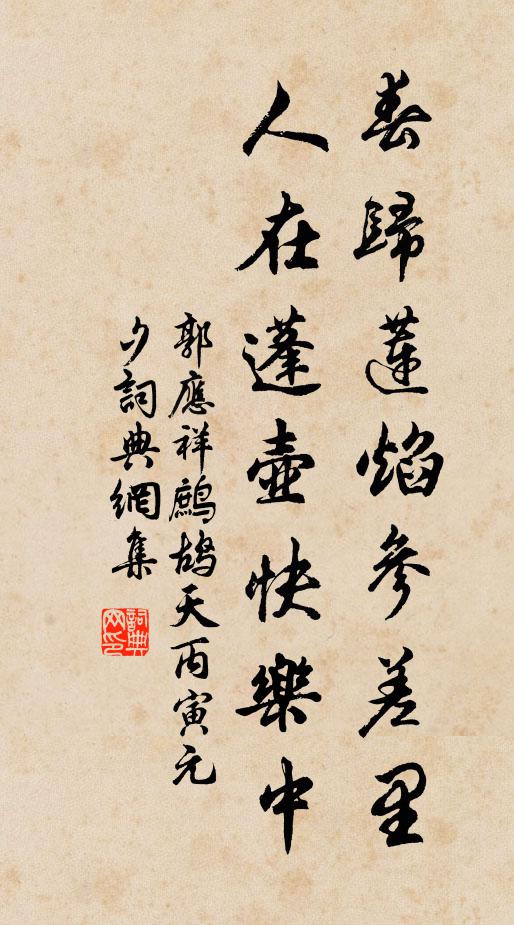 春歸蓮焰參差里
人在蓬壺快樂中
郭應祥鷓鴣天丙寅元
夕詞典網集
詞典
网印